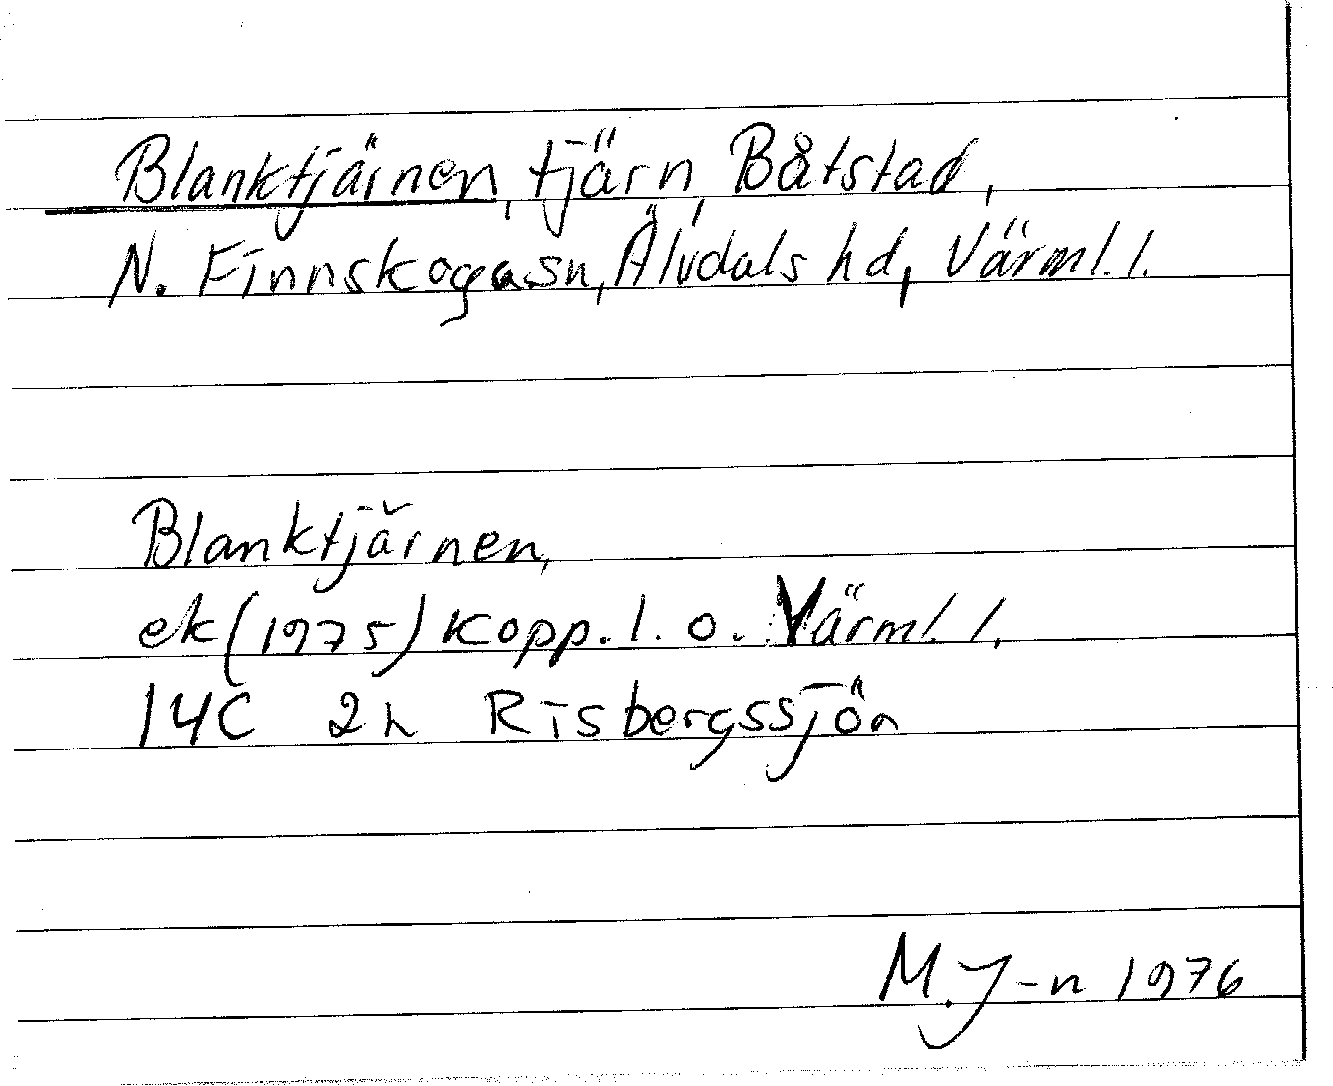 Blanktjärnen, tjärn, Båtstad,
N. Finnskogasn, Älvdals hd, Värml. l.
Blanktjärnen,
ek (1975) Kopp. l. o. Värml. l.
14C 2h Risbergssjön
M. J-n 1976